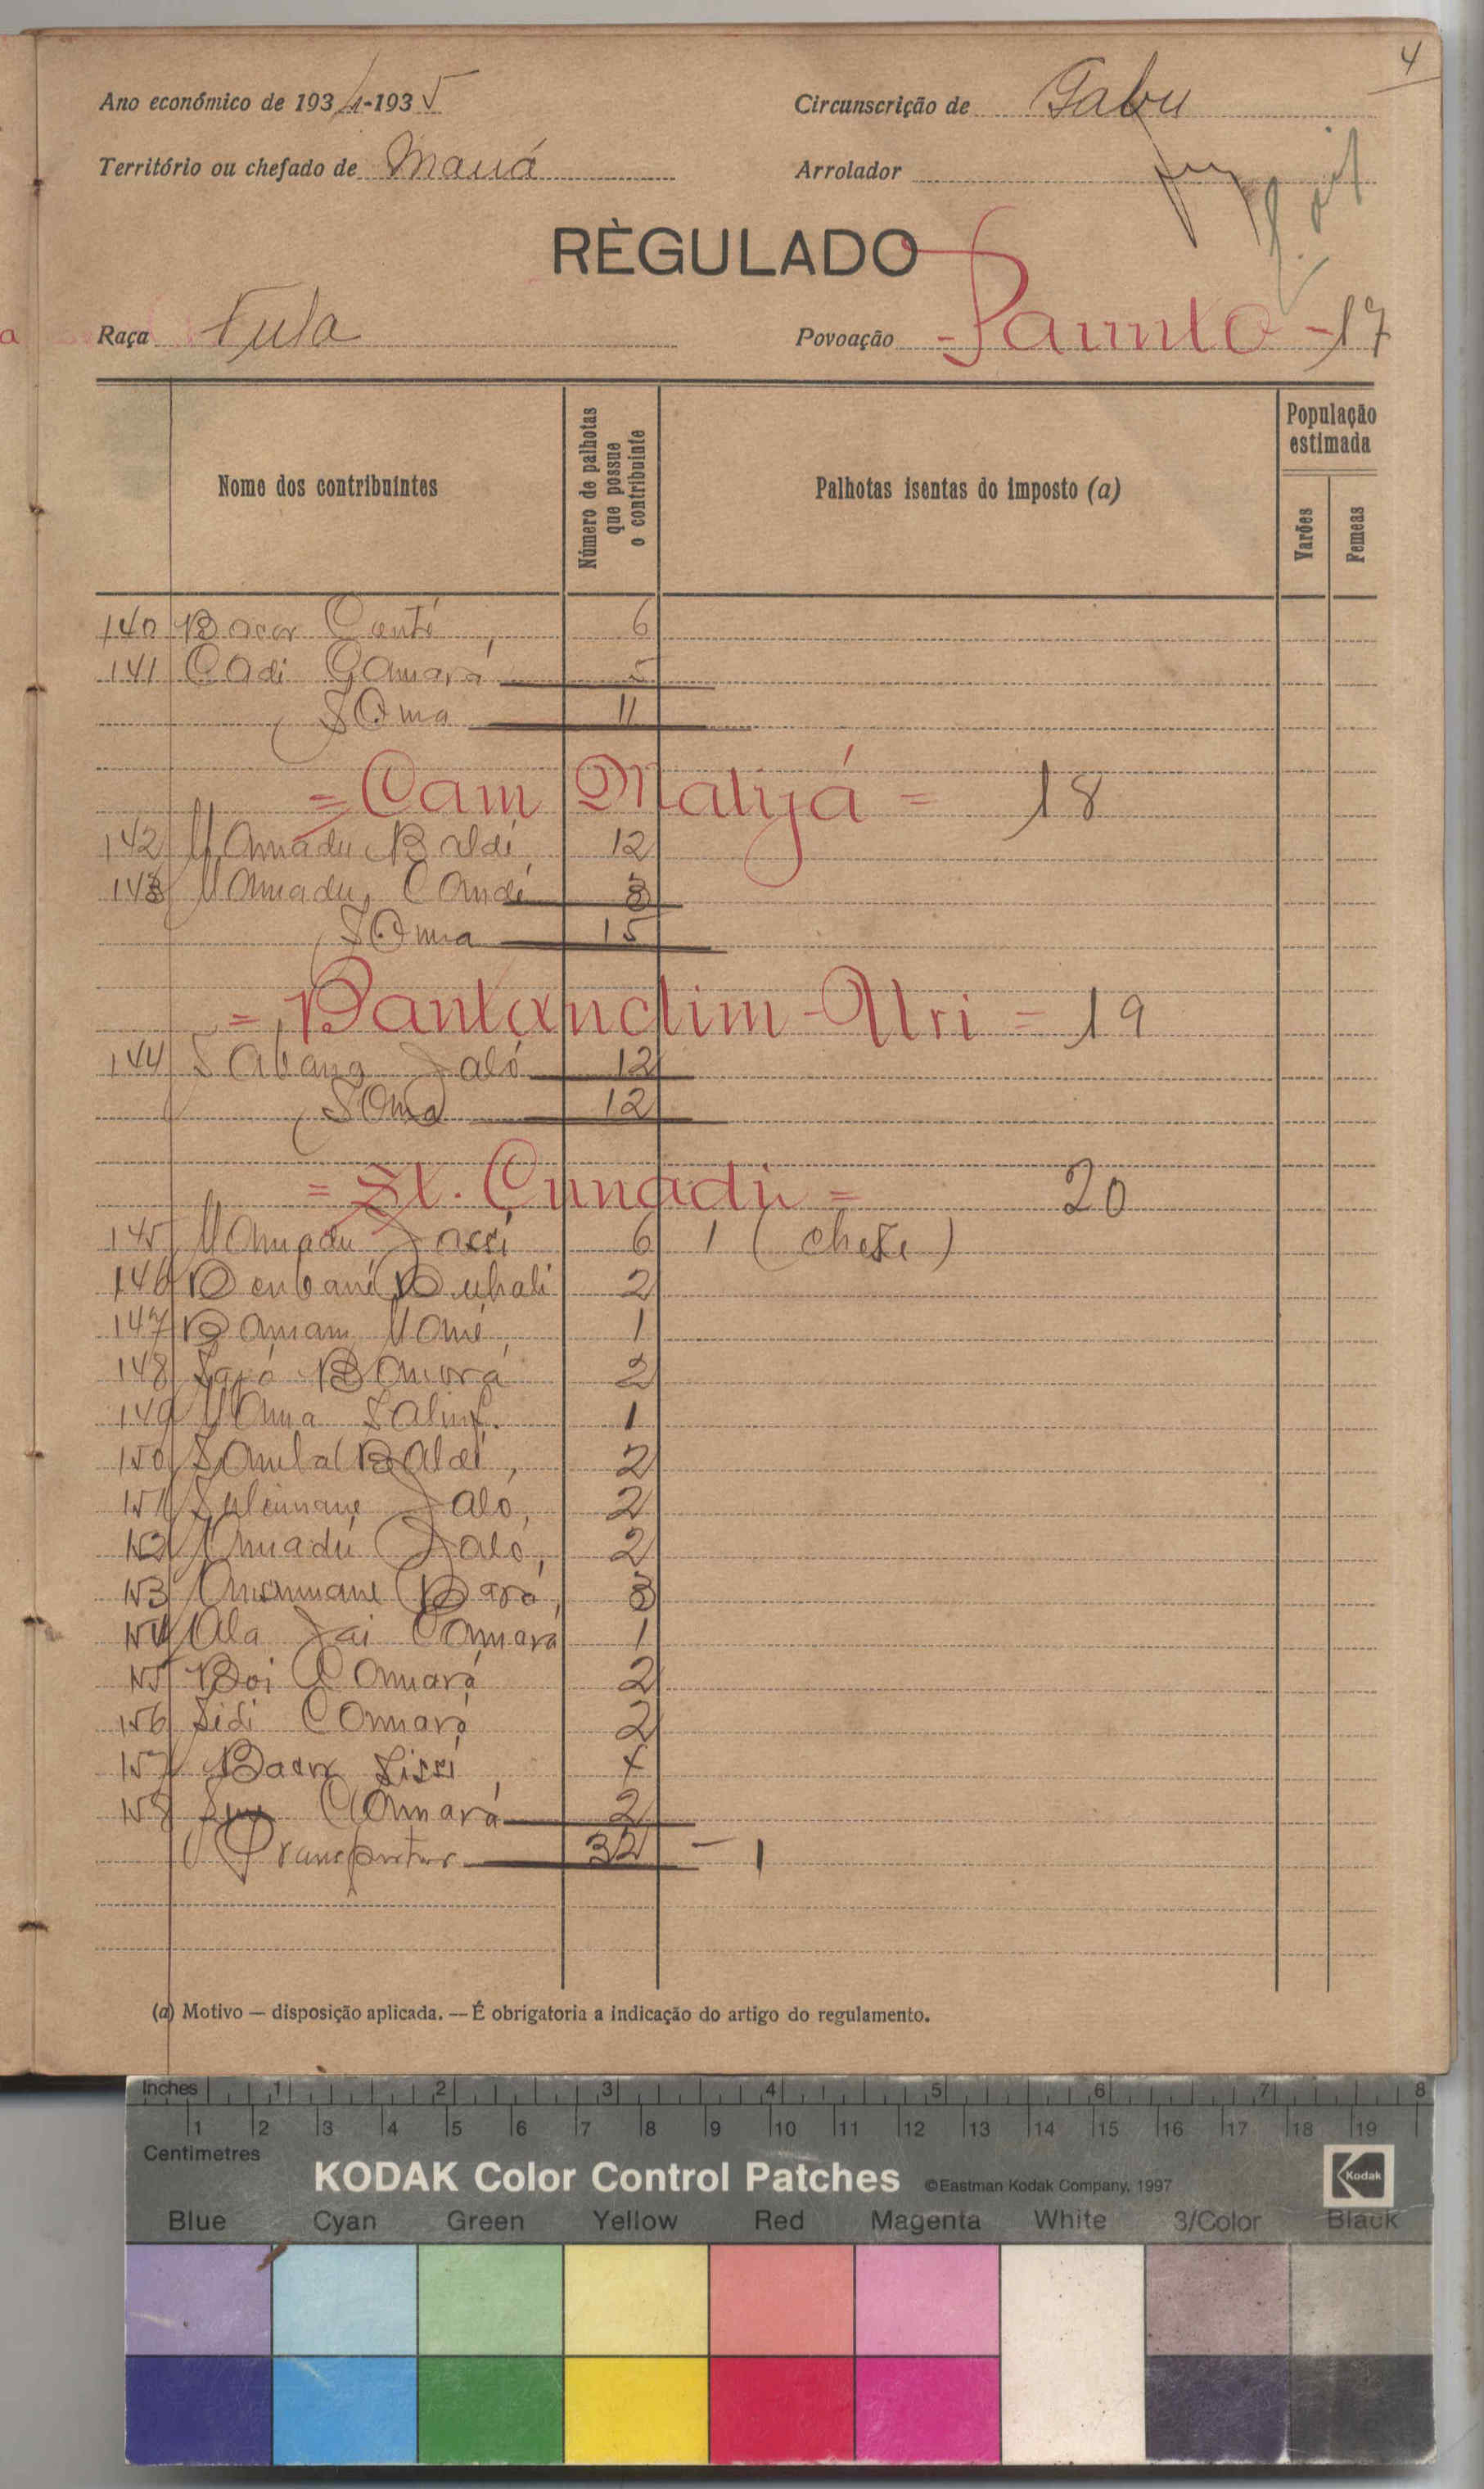 4
Ano económico de 1934-1935 Circunscrição de Gabu
Território ou chefado de Maná Arrolador
RÈGULADO
Raça Fula Povoação - Paunto - 17
População estimada
Nome dos contribuintes
Número de palhotas que possue o contribuinte
Palhotas isentas do imposto (a)
Varões
Femeas
140 Bacar Canté 6
141 Cadi Camará 5
Soma 11
= Cam Matijá = 18
142 Mamadu Baldé 12
143 Mamadu Candé 3
Soma 15
= Bantandim - Uri = 19
144 Jaló 12
Soma 12
= St. Cunadú = 20
145 Mamadu 6 1 (chefe)
146 2
147 1
148 2
149 1
150 Samba Baldé 2
151 Suleimane Jaló 2
152 Amadú Jaló 2
153 3
154 Ala Jai Camará 1
155 Boi Camará 2
156 Sidi Camará 2
157 Bacar Sissé
158 Camará 2
Transportar 32 - 1
(a) Motivo — disposição aplicada. — É obrigatoria a indicação do artigo do regulamento.
Inches 1 2 3 4 5 6 7 8
1 2 3 4 5 6 7 8 9 10 11 12 13 14 15 16 17 18 19
Centimetres
KODAK Color Control Patches ©Eastman Kodak Company, 1997 Kodak
Blue Cyan Green Yellow Red Magenta White 3/Color Black